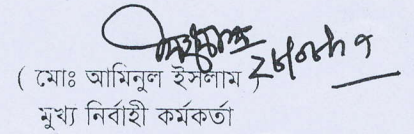 ( মোঃ আমিনুল ইসলাম )
মুখ্য নির্বাহী কর্মকর্তা